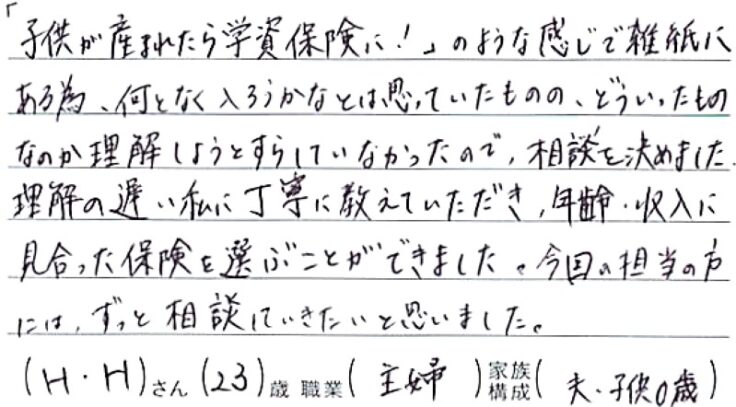 「子供が産まれたら学資保険に！」のような感じで雑紙に
ある為、何となく入ろうかなとは思っていたものの、どういったもの
なのか理解しようとすらしていなかったので、相談を決めました.
理解の遅い私に丁寧に教えていただき、年齢・収入に
見合った保険を選ぶことができました。今回の担当の方
には、ずっと相談していきたいと思いました。
(H・H)さん (23)歳 職業(主婦)家族構成(夫・子供0歳)